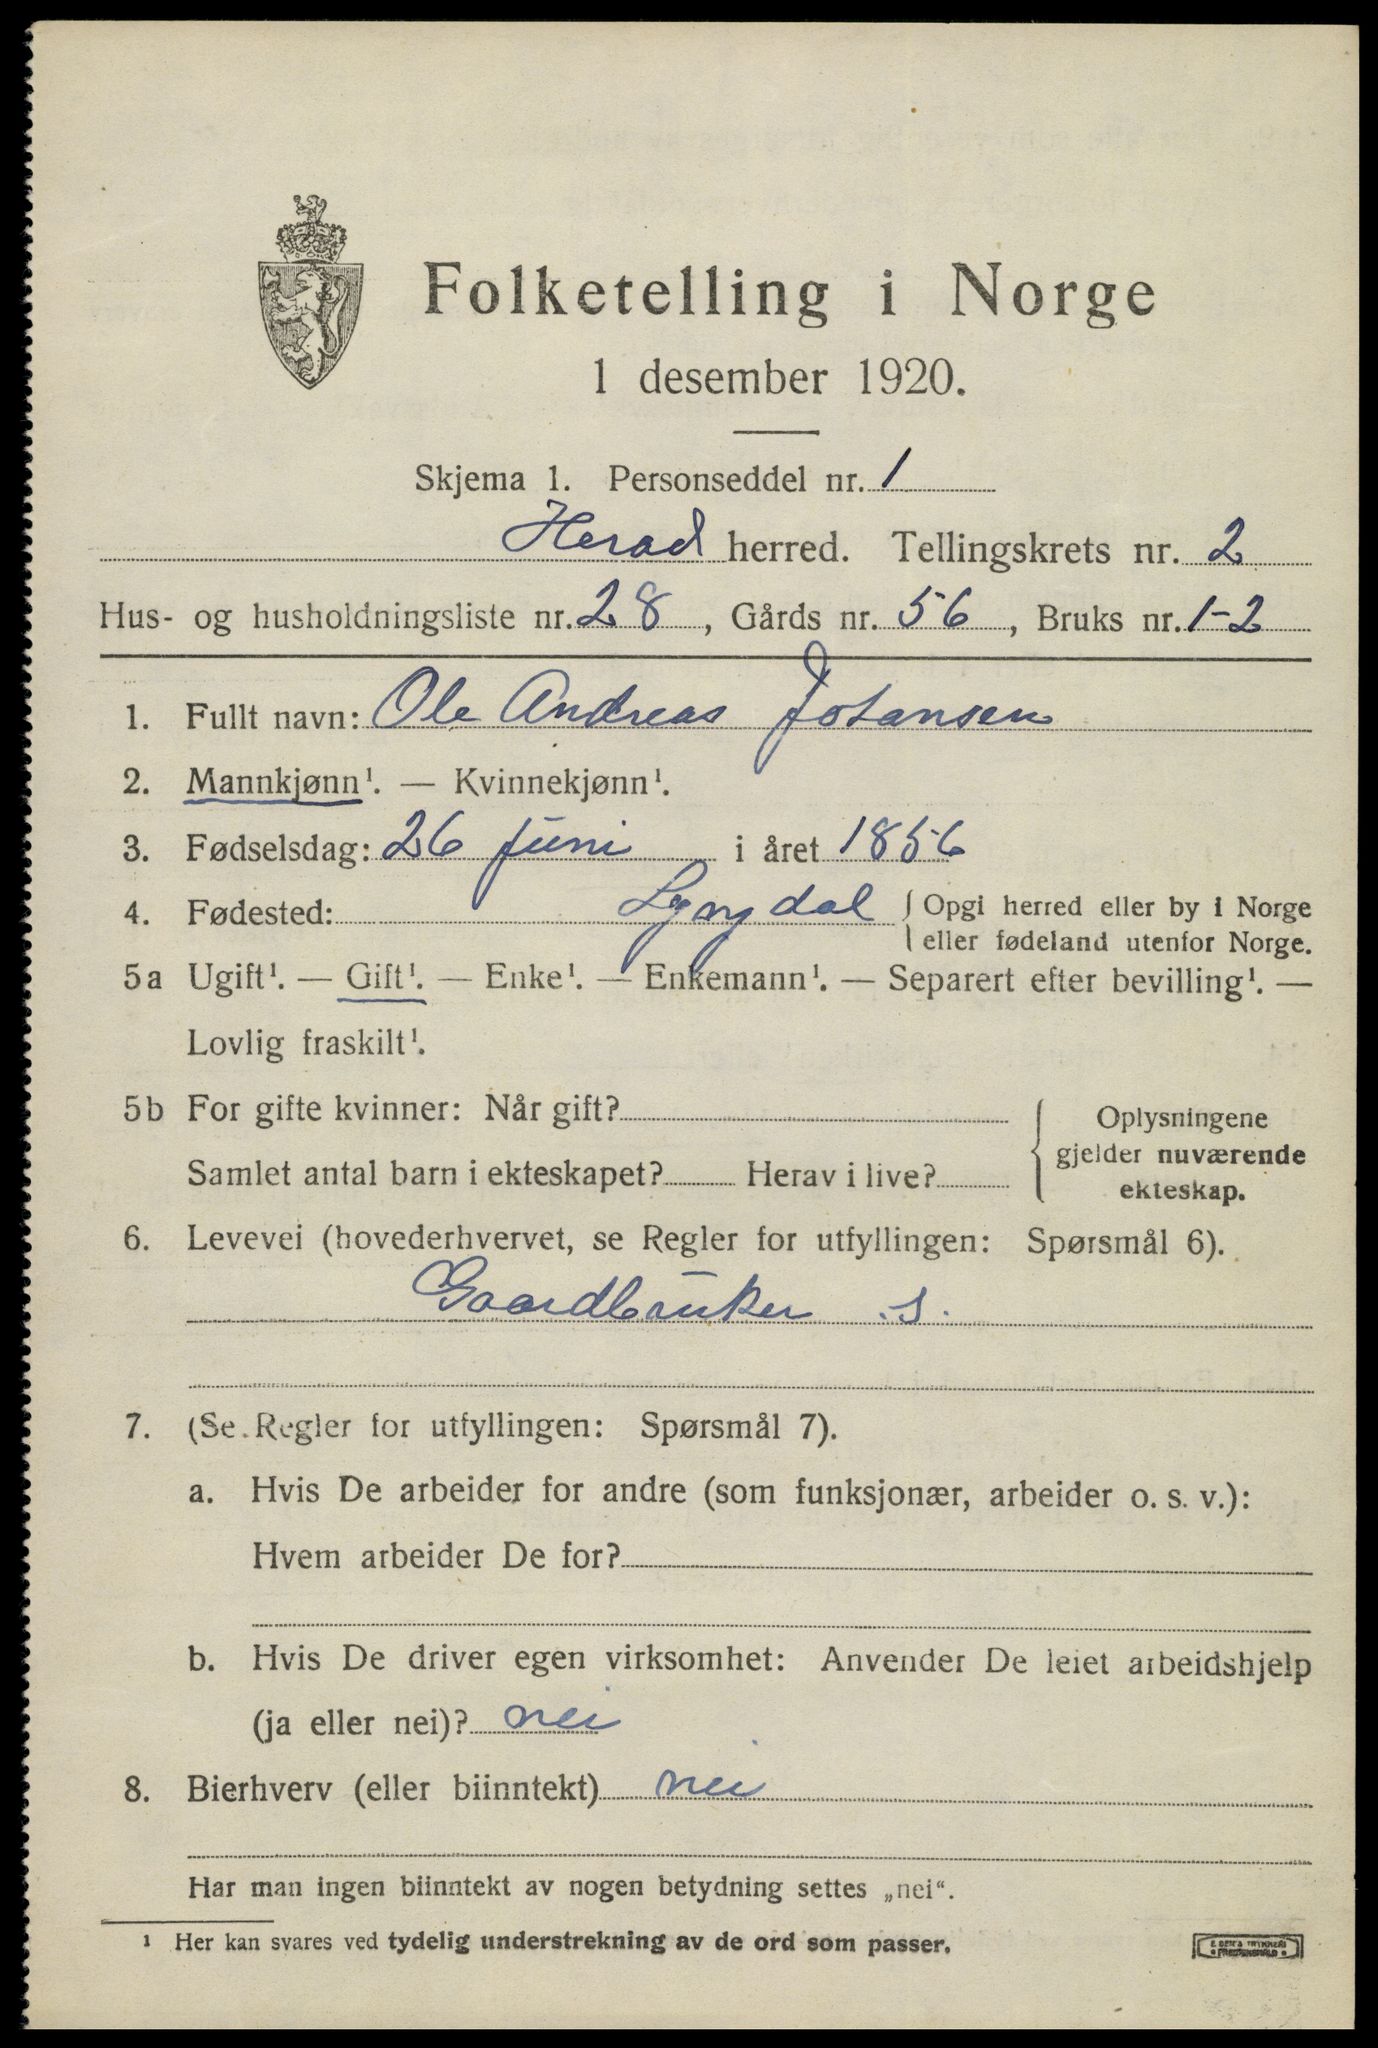 Folketelling i Norge
1 desember 1920.
Skjema 1. Personseddel nr. 1
Herad herred. Tellingskrets nr. 2
Hus- og husholdningsliste nr. 28, Gårds nr. 56, Bruks nr. 1-2
1. Fullt navn: Ole Andreas Johansen
2. Mannkjønn¹. — Kvinnekjønn¹.
3. Fødselsdag: 26 juni i året 1856
4. Fødested: Lyngdal { Opgi herred eller by i Norge
eller fødeland utenfor Norge.
5a Ugift¹. — Gift¹. — Enke¹. — Enkemann¹. — Separert efter bevilling¹. —
Lovlig fraskilt¹.
5b For gifte kvinner: Når gift?
Samlet antal barn i ekteskapet? Herav i live?
Oplysningene
gjelder nuværende
ekteskap.
6. Levevei (hovederhvervet, se Regler for utfyllingen: Spørsmål 6).
Gaardbruker .s.
7. (Se Regler for utfyllingen: Spørsmål 7).
a. Hvis De arbeider for andre (som funksjonær, arbeider o. s. v.):
Hvem arbeider De for?
b. Hvis De driver egen virksomhet: Anvender De leiet arbeidshjelp
(ja eller nei)? nei
8. Bierhverv (eller biinntekt) nei
Har man ingen biinntekt av nogen betydning settes „nei“.
¹ Her kan svares ved tydelig understrekning av de ord som passer.